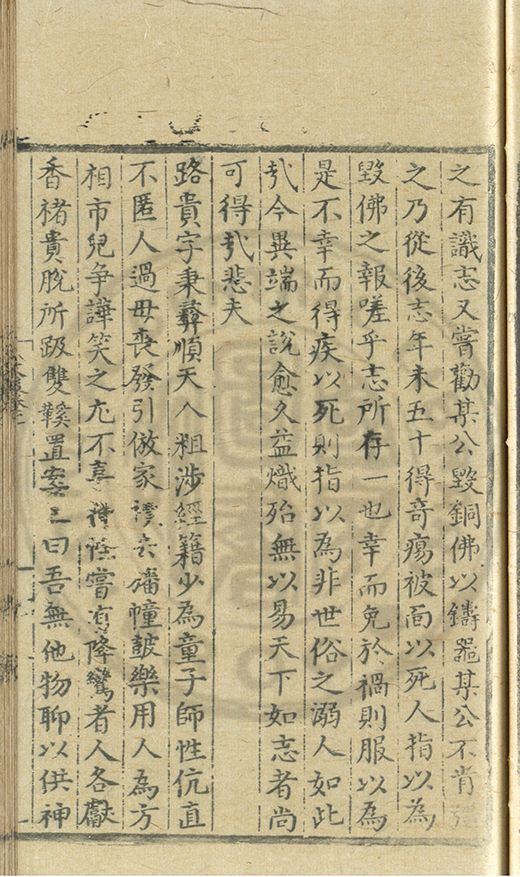 之有識志又嘗勸某公毀銅佛以鑄器某公不肯
之乃從後志年未五十得奇瘍被面以死人指以為
毀佛之報嗟乎志所存一也幸而免於禍則服以為
是不幸而得疾以死則指以為非世俗之溺人如此
㢤今異端之說愈久益熾殆無以易天下如志者尚
可得㢤悲夫
路貴字秉彞順天人粗涉經籍少為童子師性伉直
不匿人過母喪發引倣家禮去旛幢鼓樂用人為方
相市兒爭譁笑之尤不喜 嘗有降鸞者人各獻
香褚貴脫所趿雙鞵置案上曰吾無他物聊以供神